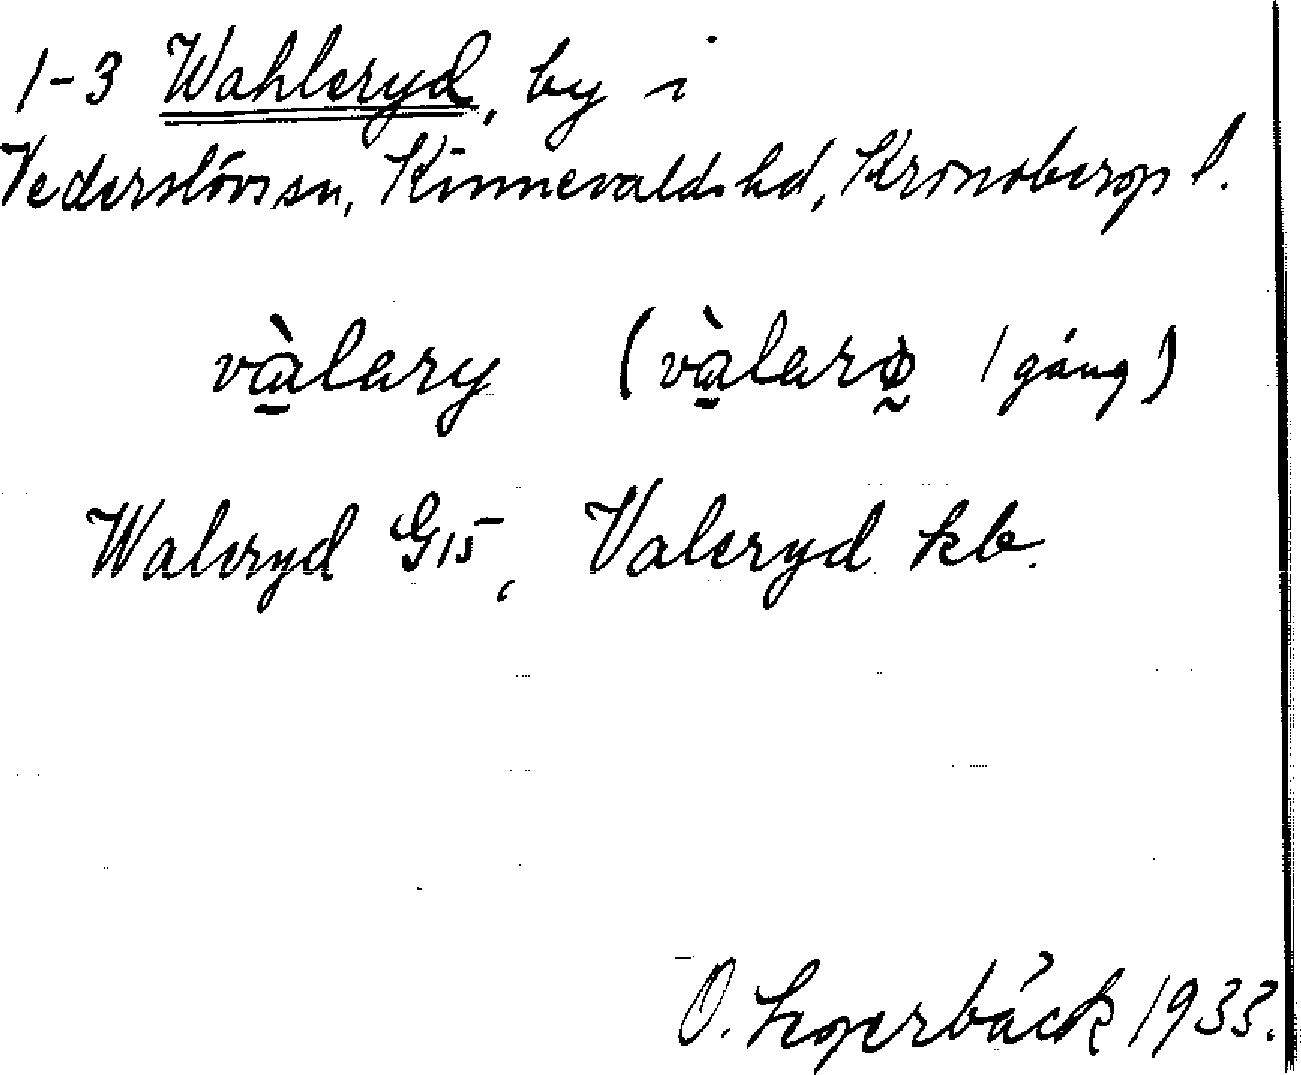 1-3 Wahleryd, by i
Vederslövs sn, Kinnevalds hd, Kronobergs l.
vàlary (vàlarø 1 gång)
Waleryd G15, Valeryd kb.
O. Legerbäck 1933.